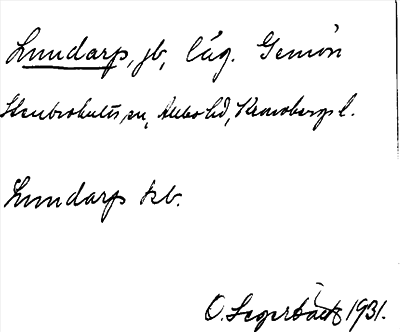 Lundarp, jb, låg. Gemön
Stenbrohults sn, Allbo hd, Kronobergs l.
Lundarp kb.
O. Segerbäck 1931.